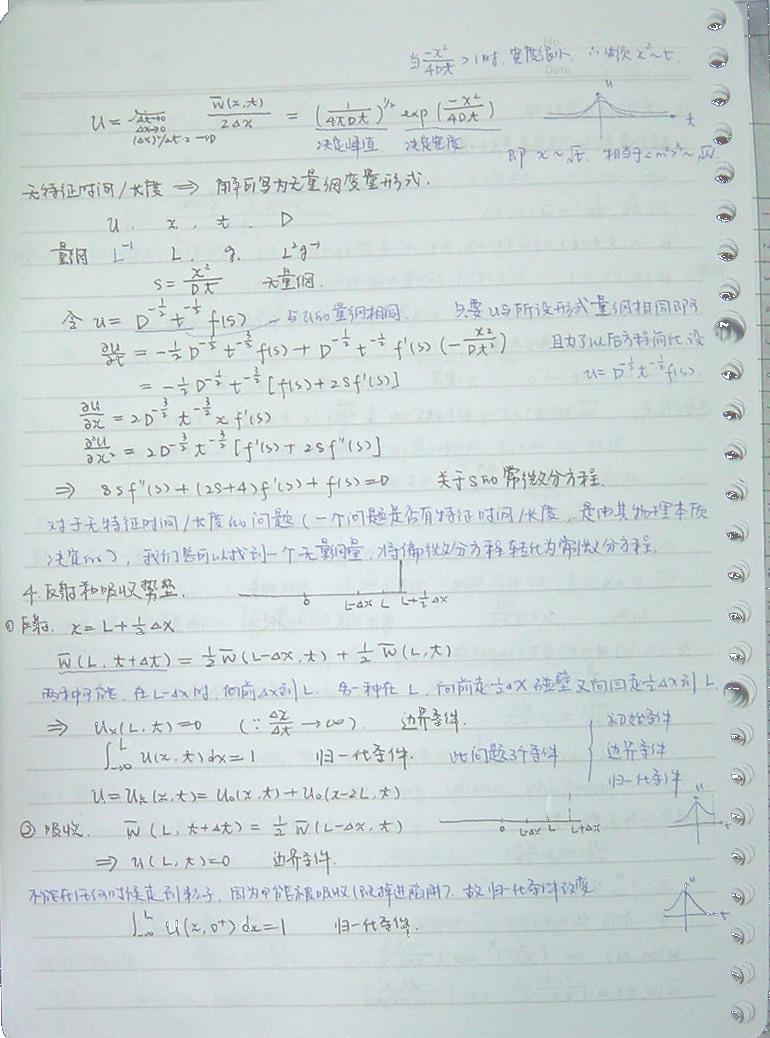 当 -x²/4Dt > 1时, 宽度很小. ∴ 峰宽 x²~t.
u = lim_{Δt→0, Δx→0, (Δx)²/Δt·2→D} w̄(x,t)/2Δx = (1/4πDt)^{1/2} exp(-x²/4Dt)
决定峰值 决定宽度
u
t
即 x~√t. 相当于<m²>^{1/2}~√N.
无特征时间/长度 ⇒ 解可写为无量纲变量形式.
u . x , t . D
量纲 L⁻¹ L . g. L²g⁻¹
s = x²/Dt 无量纲.
令 u = D^{-1/2} t^{-1/2} f(s) 与u的量纲相同. 只要u与所设形式量纲相同即可
∂u/∂t = -1/2 D^{-1/2} t^{-3/2} f(s) + D^{-1/2} t^{-1/2} f'(s) (-x²/Dt²) 且为了以后方程简化 设
= -1/2 D^{-1/2} t^{-3/2} [f(s)+2sf'(s)] u = D^{-1/2} t^{-1/2} f(s).
∂u/∂x = 2D^{-3/2} t^{-3/2} x f'(s)
∂²u/∂x² = 2D^{-3/2} t^{-3/2} [f'(s) + 2sf''(s)]
⇒ 8sf''(s) + (2s+4)f'(s) + f(s) = 0 关于s的常微分方程.
对于无特征时间/长度的问题 (一个问题是否有特征时间/长度, 是由其物理本质
决定的), 我们总可以找到一个无量纲量, 将偏微分方程转化为常微分方程.
4. 反射和吸收势垒.
0 L-Δx L L+½Δx
① 反射. x = L+½Δx
w̄(L, t+Δt) = ½ w̄(L-Δx, t) + ½ w̄(L, t)
两种可能, 在L-Δx时, 向前Δx到L. 另一种在L, 向前走½Δx 碰壁又向回走½Δx到L.
⇒ uₓ(L,t) = 0 (∵ Δx/Δt → ∞). 边界条件. 初始条件
∫_{-∞}^{L} u(x,t)dx = 1 归一化条件. 此问题3个条件 边界条件
归一化条件
u = u_R(x,t) = u₀(x,t) + u₀(x-2L, t)
u
② 吸收. w̄(L, t+Δt) = ½ w̄(L-Δx, t) 0 L-Δx L L+Δx
⇒ u(L,t) = 0 边界条件.
不能在任何时候走到粒子, 因为可能被吸收(即掉进陷阱). 故归一化条件改变.
u
∫_{-∞}^{L} u(x,0⁺)dx = 1 归一化条件.